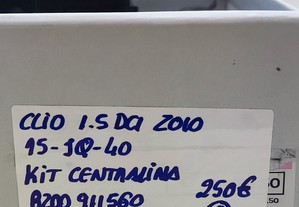 CLIO 1.5 DCI 2010
15-JQ-40
KIT CENTRALINA
8200911560 250€